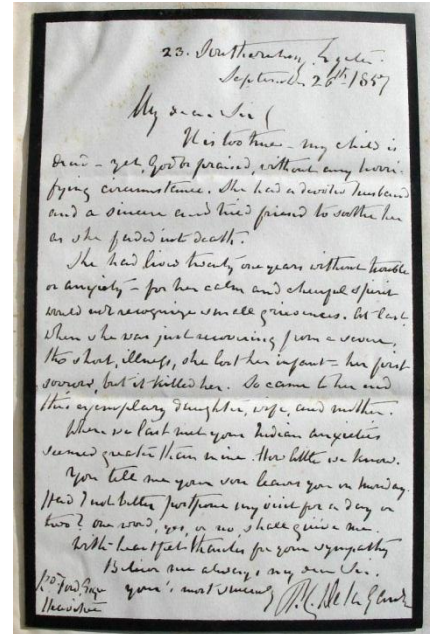 23. Southernhay, Exeter.
September 26th 1857
My dear Sir
It is too true - my child is
dead - yet, God be praised, without any horri-
fying circumstance. She had a devoted husband
and a sincere and tried friend to soothe her
as she faded into death.
She had lived twenty one years without trouble
or anxiety - for her calm and cheerful spirit
would not recognize small grievances. At last
when she was just recovering from a severe,
tho short, illness, she lost her infant - her first
sorrow, but it killed her. So came to her end
this exemplary daughter, wife, and mother.
When we last met your Indian anxieties
seemed greater than mine. How little we know.
You tell me your son leaves you on Monday.
Had I not better postpone my visit for a day or
two? One word, yes, or no, shall guide me.
With heartfelt thanks for your sympathy
Believe me always, my dear Sir,
your's most sincerely
P. C. De la Garde
Rd Ford, Esqr
Heavitree